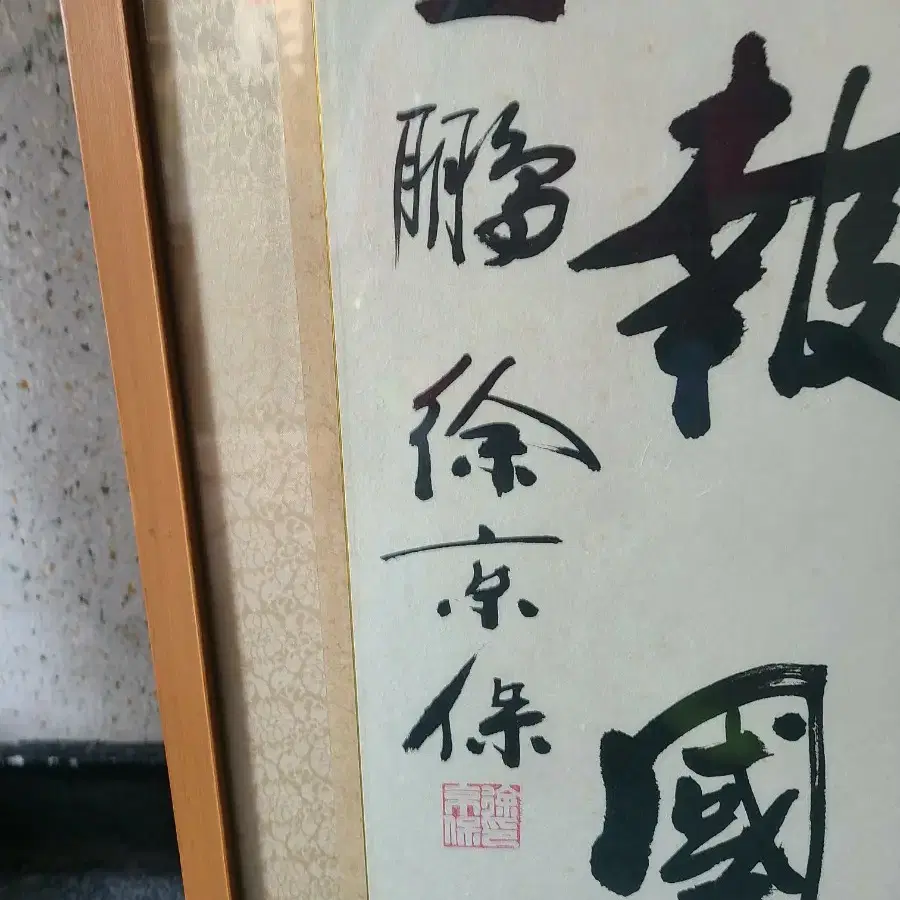 報國
鵬 徐京保
徐印
京保